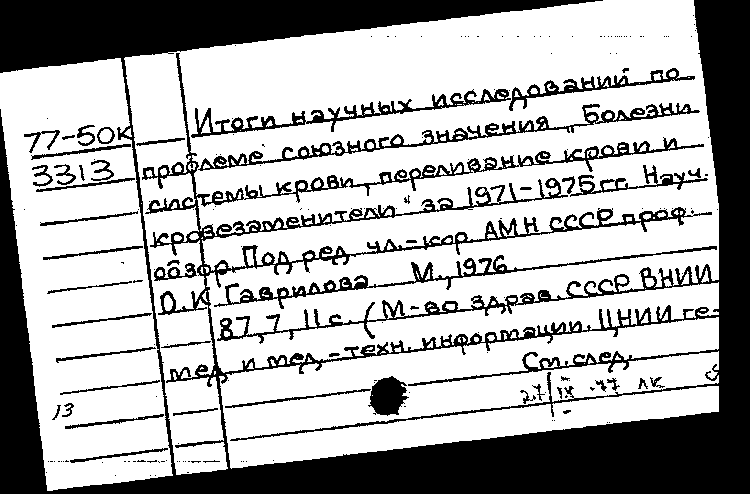 Итоги научных исследований по
77-50к проблеме союзного значения „Болезни
3313 системы крови, переливание крови и
кровезаменители" за 1971-1975 гг. Науч.
обзор. Под ред. чл.-кор. АМН СССР проф.
О.К. Гаврилова. М., 1976.
87, 7, 11 с. (М-во здрав. СССР. ВНИИ
мед. и мед.-техн. информации. ЦНИИ ге-
См. след.
13
27/IX-77 ЛК